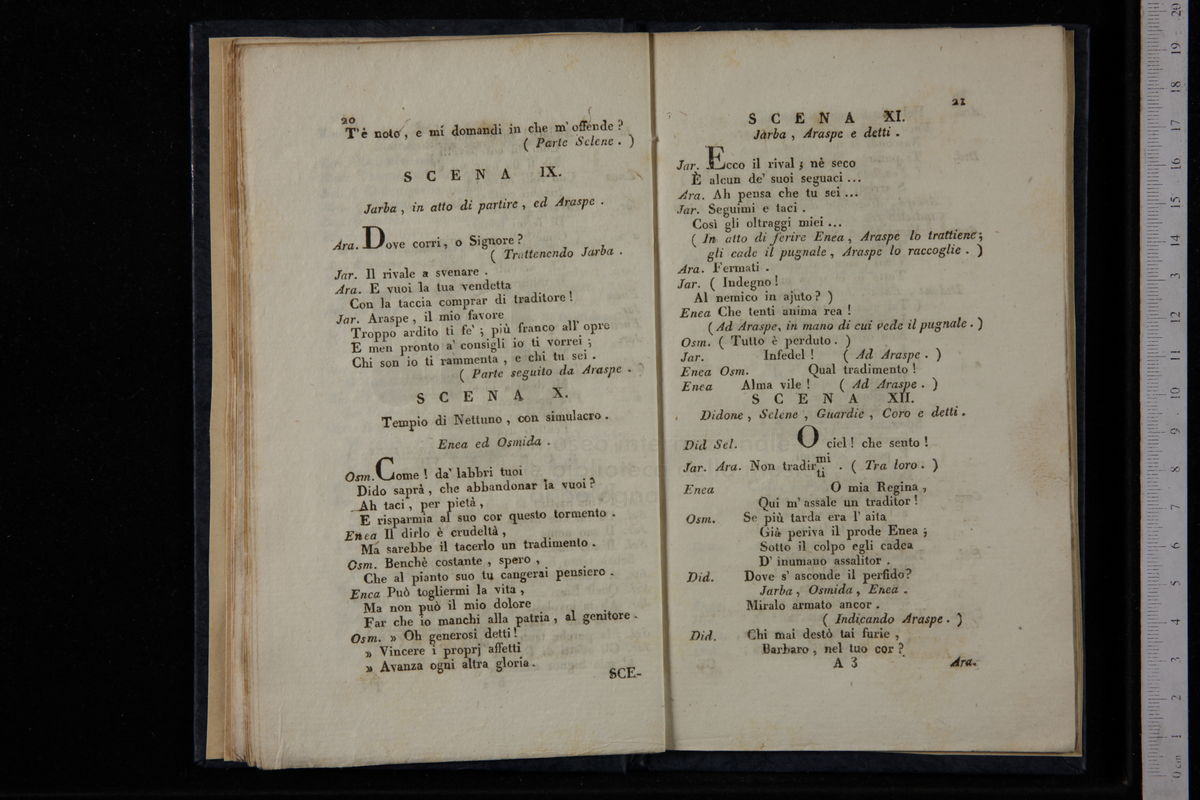 20
T'è noto, e mi domandi in che m' offende?
( Parte Selene . )
SCENA IX.
Jarba , in atto di partire , ed Araspe .
Ara. Dove corri, o Signore?
( Trattenendo Jarba .
Jar. Il rivale a svenare .
Ara. E vuoi la tua vendetta
Con la taccia comprar di traditore!
Jar. Araspe , il mio favore
Troppo ardito ti fe' ; più franco all' opre
E men pronto a' consigli io ti vorrei ;
Chi son io ti rammenta , e chi tu sei .
( Parte seguito da Araspe .
SCENA X.
Tempio di Nettuno , con simulacro .
Enea ed Osmida .
Osm. Come! da' labbri tuoi
Dido saprà , che abbandonar la vuoi?
Ah taci , per pietà ,
E risparmia al suo cor questo tormento .
Enea Il dirlo è crudeltà ,
Ma sarebbe il tacerlo un tradimento .
Osm. Benchè costante , spero ,
Che al pianto suo tu cangerai pensiero .
Enea Può togliermi la vita ,
Ma non può il mio dolore
Far che io manchi alla patria , al genitore .
Osm. » Oh generosi detti!
» Vincere i proprj affetti
» Avanza ogni altra gloria .
SCE-
21
SCENA XI.
Jarba , Araspe e detti .
Jar. Ecco il rival ; nè seco
È alcun de' suoi seguaci ...
Ara. Ah pensa che tu sei ...
Jar. Seguimi e taci .
Così gli oltraggi miei ...
( In atto di ferire Enea , Araspe lo trattiene;
gli cade il pugnale , Araspe lo raccoglie . )
Ara. Fermati .
Jar. ( Indegno!
Al nemico in ajuto? )
Enea Che tenti anima rea!
( Ad Araspe, in mano di cui vede il pugnale . )
Osm. ( Tutto è perduto . )
Jar. Infedel! ( Ad Araspe . )
Enea Osm. Qual tradimento!
Enea Alma vile! ( Ad Araspe . )
SCENA XII.
Didone , Selene , Guardie , Coro e detti .
Did Sel. O ciel! che sento!
Jar. Ara. Non tradir mi ti . ( Tra loro . )
Enea O mia Regina ,
Qui m' assale un traditor!
Osm. Se più tarda era l' aita
Già periva il prode Enea ;
Sotto il colpo egli cadea
D' inumano assalitor .
Did. Dove s' asconde il perfido?
Jarba , Osmida , Enea .
Miralo armato ancor .
( Indicando Araspe . )
Did. Chi mai destò tai furie ,
Barbaro , nel tuo cor?
A 3 Ara.
0 cm 1 2 3 4 5 6 7 8 9 10 11 12 13 14 15 16 17 18 19 20